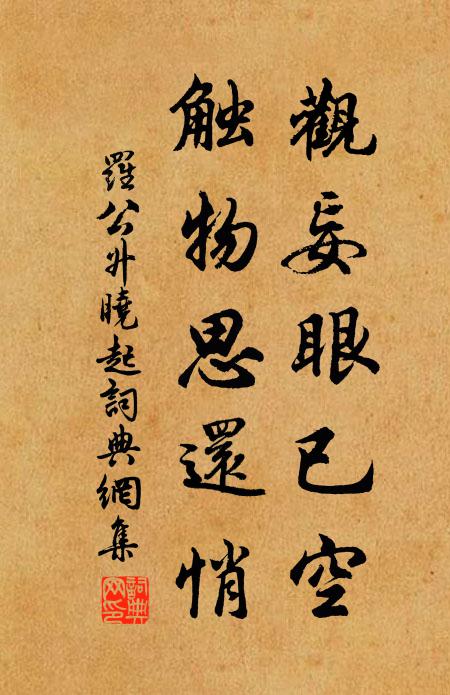 觀妄眼已空
触物思還悄
羅公升曉起詞典網集
詞典网印